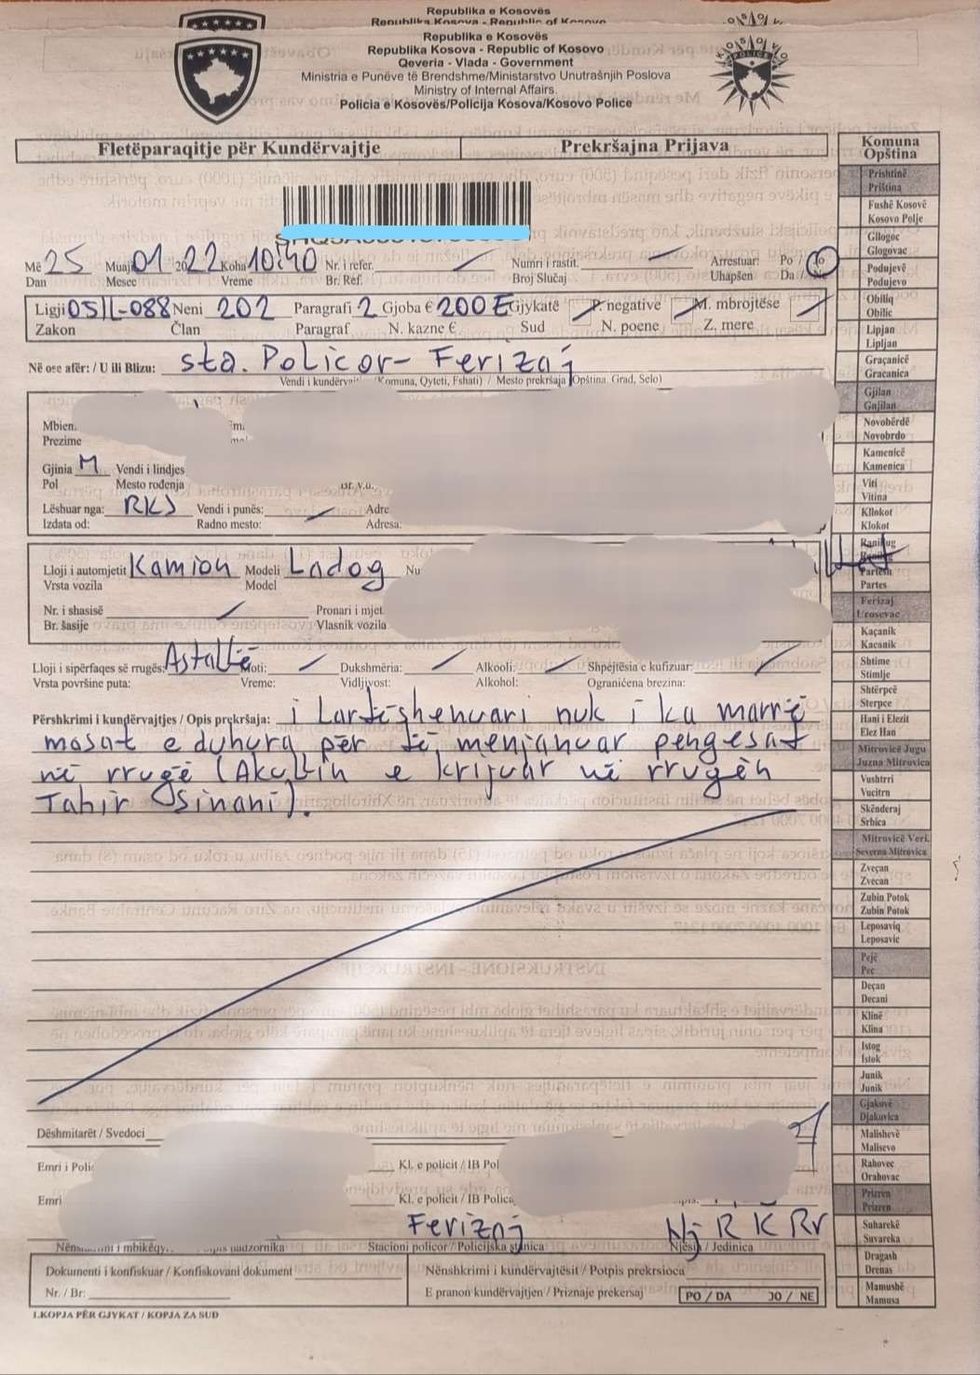 Republika e Kosovës
Republika Kosova - Republic of Kosovo
Republika e Kosovës
Republika Kosova - Republic of Kosovo
Qeveria - Vlada - Government
Ministria e Punëve të Brendshme/Ministarstvo Unutrašnjih Poslova
Ministry of Internal Affairs.
Policia e Kosovës/Policija Kosova/Kosovo Police
Fletëparaqitje për Kundërvajtje Prekršajna Prijava
Më 25 Muaj 01 2022 Koha 10:40 Nr. i refer. Numri i rastit. Arrestuar: Po / Jo
Dan Mesec Vreme Br. Ref. Broj Slučaj Uhapšen Da / Ne
Ligji 05/L-088 Neni 202 Paragrafi 2 Gjoba € 200 € Gjykatë P. negative M. mbrojtëse
Zakon Član Paragraf N. kazne € Sud N. poene Z. mere
Në ose afër: / U ili Blizu: sta. Policor - Ferizaj
Vendi i kundërvajt (Komuna, Qyteti, Fshati) / Mesto prekršaja (Opština. Grad, Selo)
Mbien.
Prezime
Gjinia M Vendi i lindjes
Pol Mesto rođenja
Lëshuar nga: RKS Vendi i punës: Adre
Izdata od: Radno mesto: Adresa:
Lloji i automjetit Kamion Modeli Ladog Nu
Vrsta vozila Model
Nr. i shasisë Pronari i mjet
Br. šasije Vlasnik vozila
Lloji i sipërfaqes së rrugës: Asfallë Moti: Dukshmëria: Alkooli: Shpejtësia e kufizuar:
Vrsta površine puta: Vreme: Vidljivost: Alkohol: Ograničena brezina:
Përshkrimi i kundërvajtjes / Opis prekršaja: i Lartëshenuari nuk i ka marrë
masat e duhura për të menjanuar pengesat
në rrugë (Akullin e krijuar në rrugën
Tahir Sinani).
Dëshmitarët / Svedoci
Emri i Polic Kl. e policit / IB Pol
Emri Kl. e policit / IB Polica
Ferizaj Nj R K Rr
Stacioni policor / Policijska stanica Njësia / Jedinica
Dokumenti i konfiskuar / Konfiskovani dokument Nënshkrimi i kundërvajtësit / Potpis prekrsioca
Nr. / Br: E pranon kundërvajtjen / Priznaje prekersaj PO / DA JO / NE
1.KOPJA PËR GJYKAT / KOPJA ZA SUD
Komuna
Opština
Prishtinë
Priština
Fushë Kosovë
Kosovo Polje
Gllogoc
Glogovac
Podujevë
Podujevo
Obiliq
Obilic
Lipjan
Lipljan
Graçanicë
Gracanica
Gjilan
Gnjilan
Novobërdë
Novobrdo
Kamenicë
Kamenica
Viti
Vitina
Kllokot
Klokot
Ranillug
Partesh
Partes
Ferizaj
Urosevac
Kaçanik
Kacanik
Shtime
Stimlje
Shtërpcë
Sterpce
Hani i Elezit
Elez Han
Mitrovicë Jugu
Juzna Mitrovica
Vushtrri
Vucitrn
Skënderaj
Srbica
Mitrovicë Veri.
Severna Mitrovica
Zveçan
Zvecan
Zubin Potok
Zubin Potok
Leposaviq
Leposavic
Pejë
Pec
Deçan
Decani
Klinë
Klina
Istog
Istok
Junik
Junik
Gjakovë
Djakovica
Malishevë
Malisevo
Rahovec
Orahovac
Prizren
Prizren
Suharekë
Suvareka
Dragash
Drenas
Mamushë
Mamusa